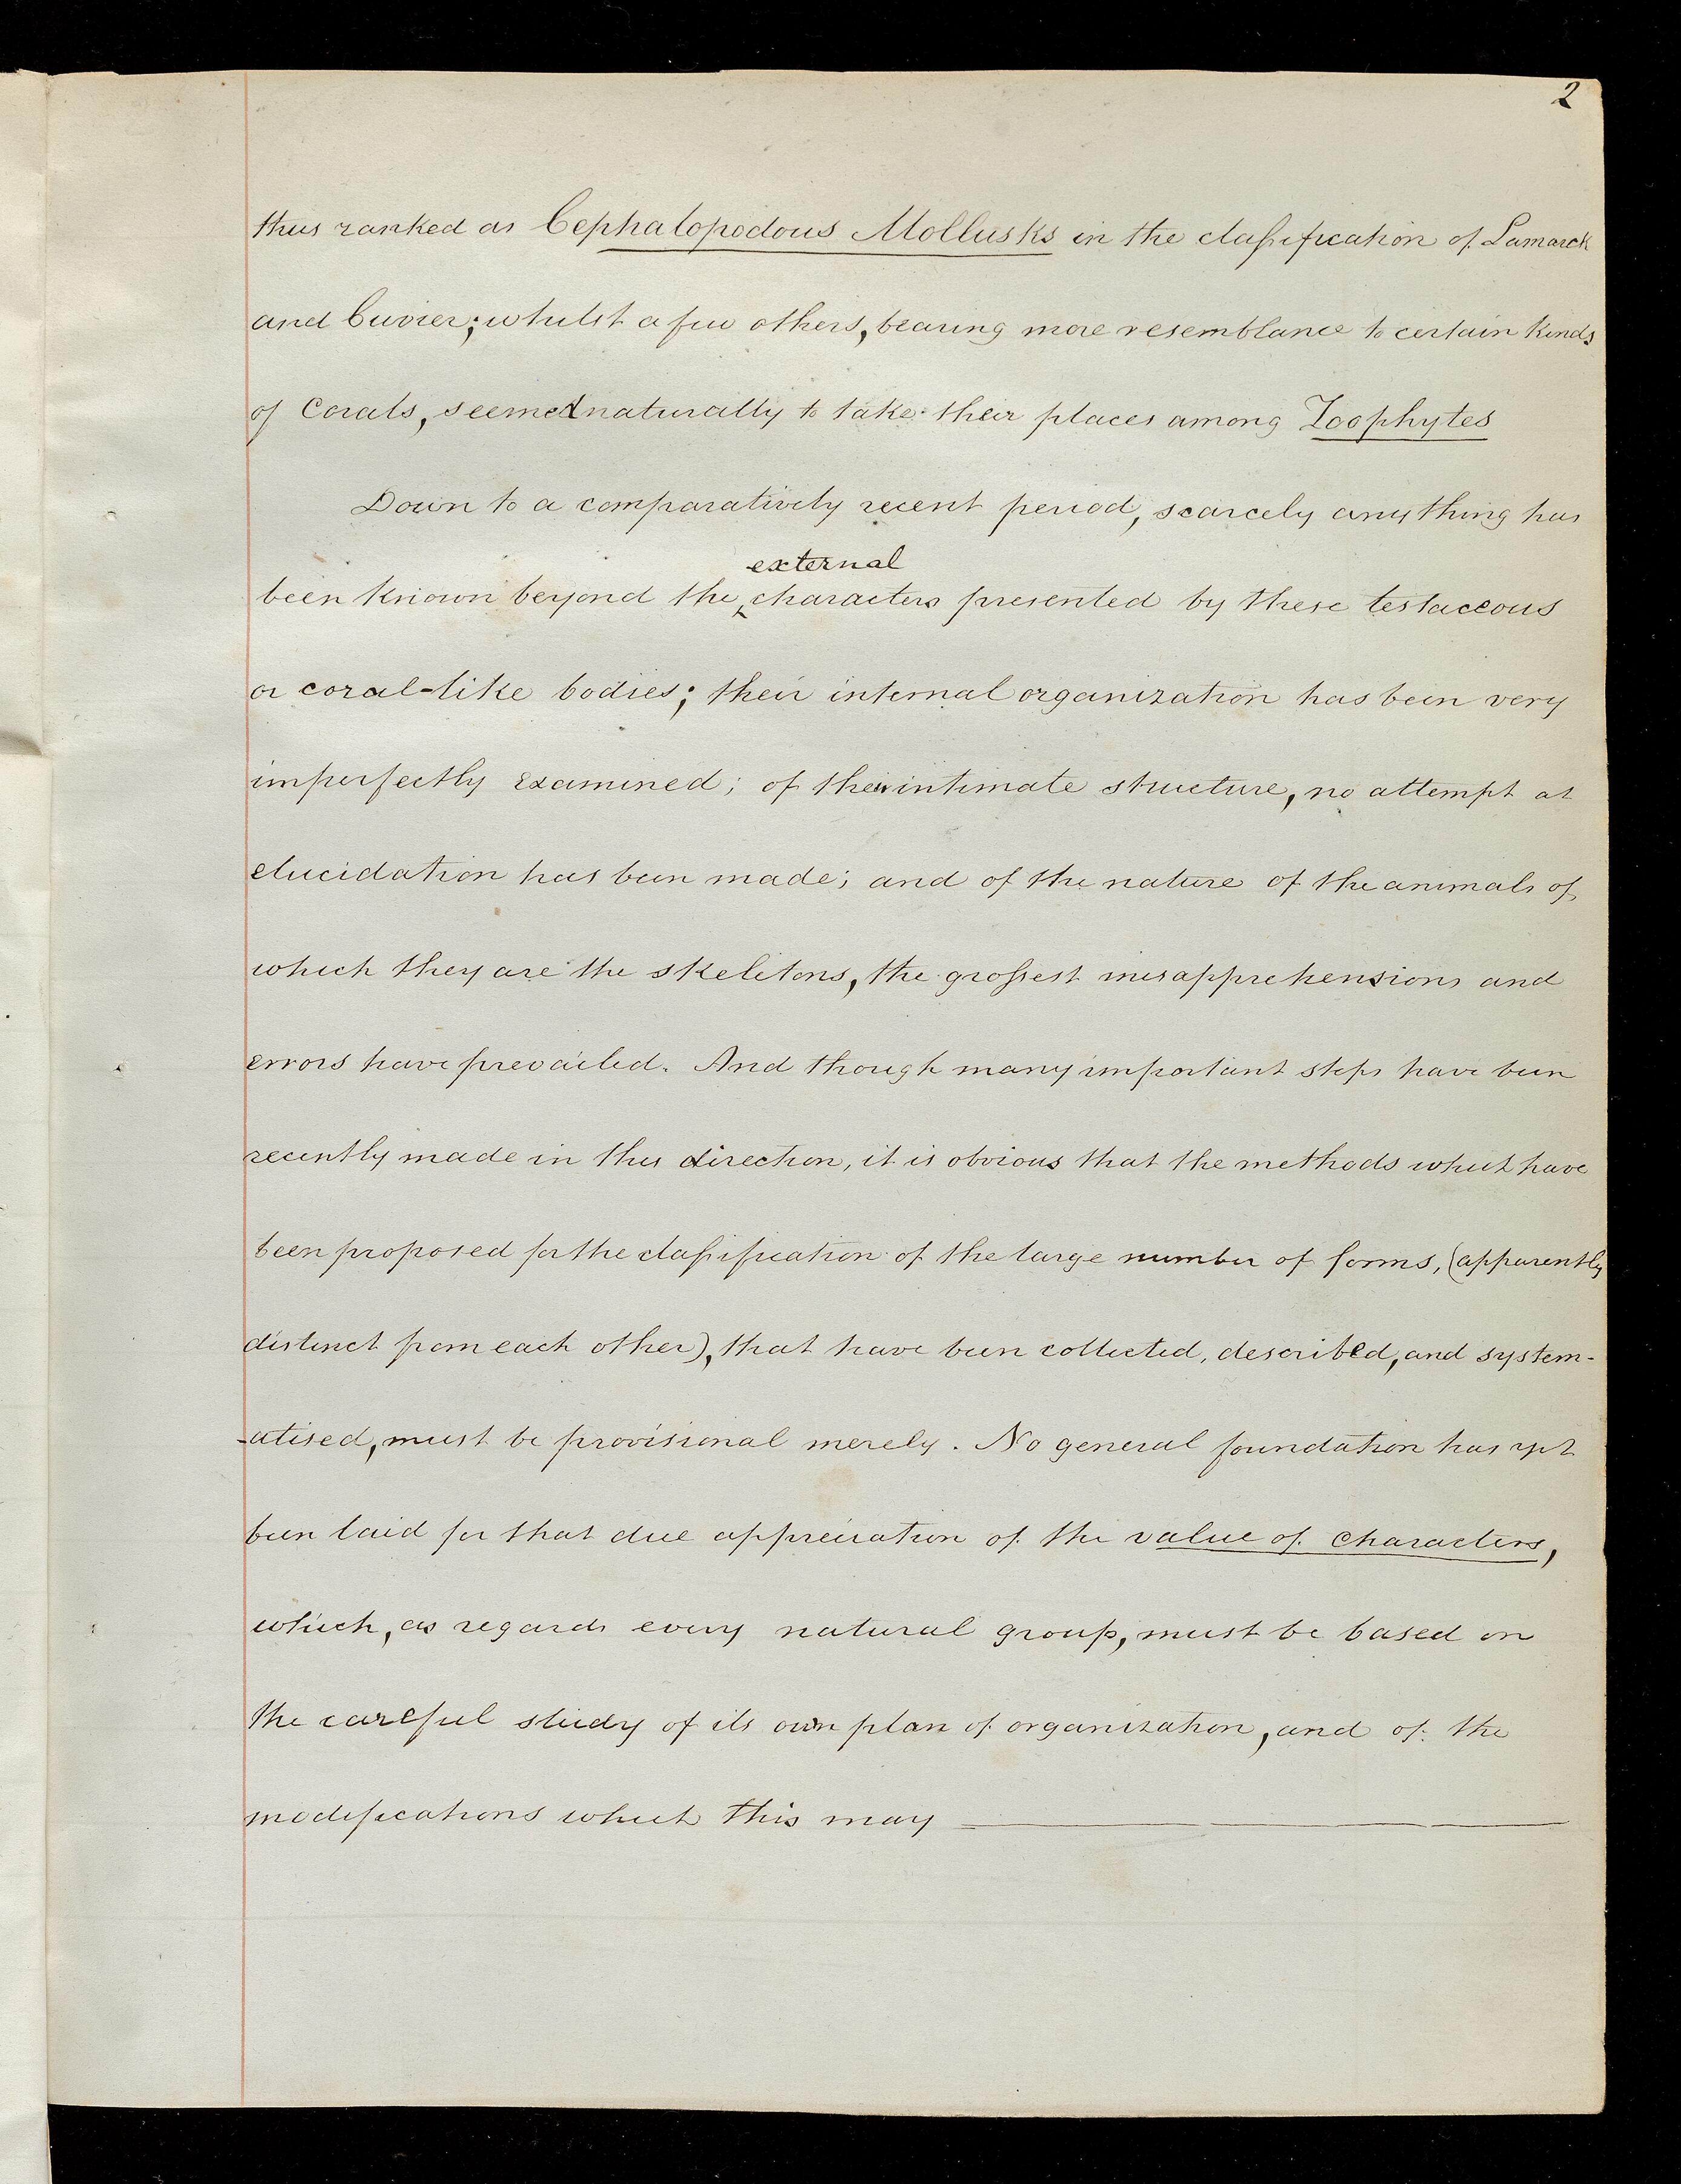 2
thus ranked as Cephalopodous Mollusks in the classification of Lamarck
and Cuvier; whilst a few others, bearing more resemblance to certain kinds
of Corals, seemed naturally to take their places among Zoophytes
Down to a comparatively recent period, scarcely anything has
external
been known beyond the characters presented by these testaceous
or coral-like bodies; their internal organization has been very
imperfectly examined; of their intimate structure, no attempt at
elucidation has been made; and of the nature of the animals of
which they are the skeletons, the grossest misapprehensions and
errors have prevailed. And though many important steps have been
recently made in this direction, it is obvious that the methods which have
been proposed for the classification of the large number of forms, (apparently
distinct from each other), that have been collected, described, and system-
-atised, must be provisional merely. No general foundation has yet
been laid for that due appreciation of the value of characters,
which, as regards every natural group, must be based on
the careful study of its own plan of organization, and of the
modifications which this may